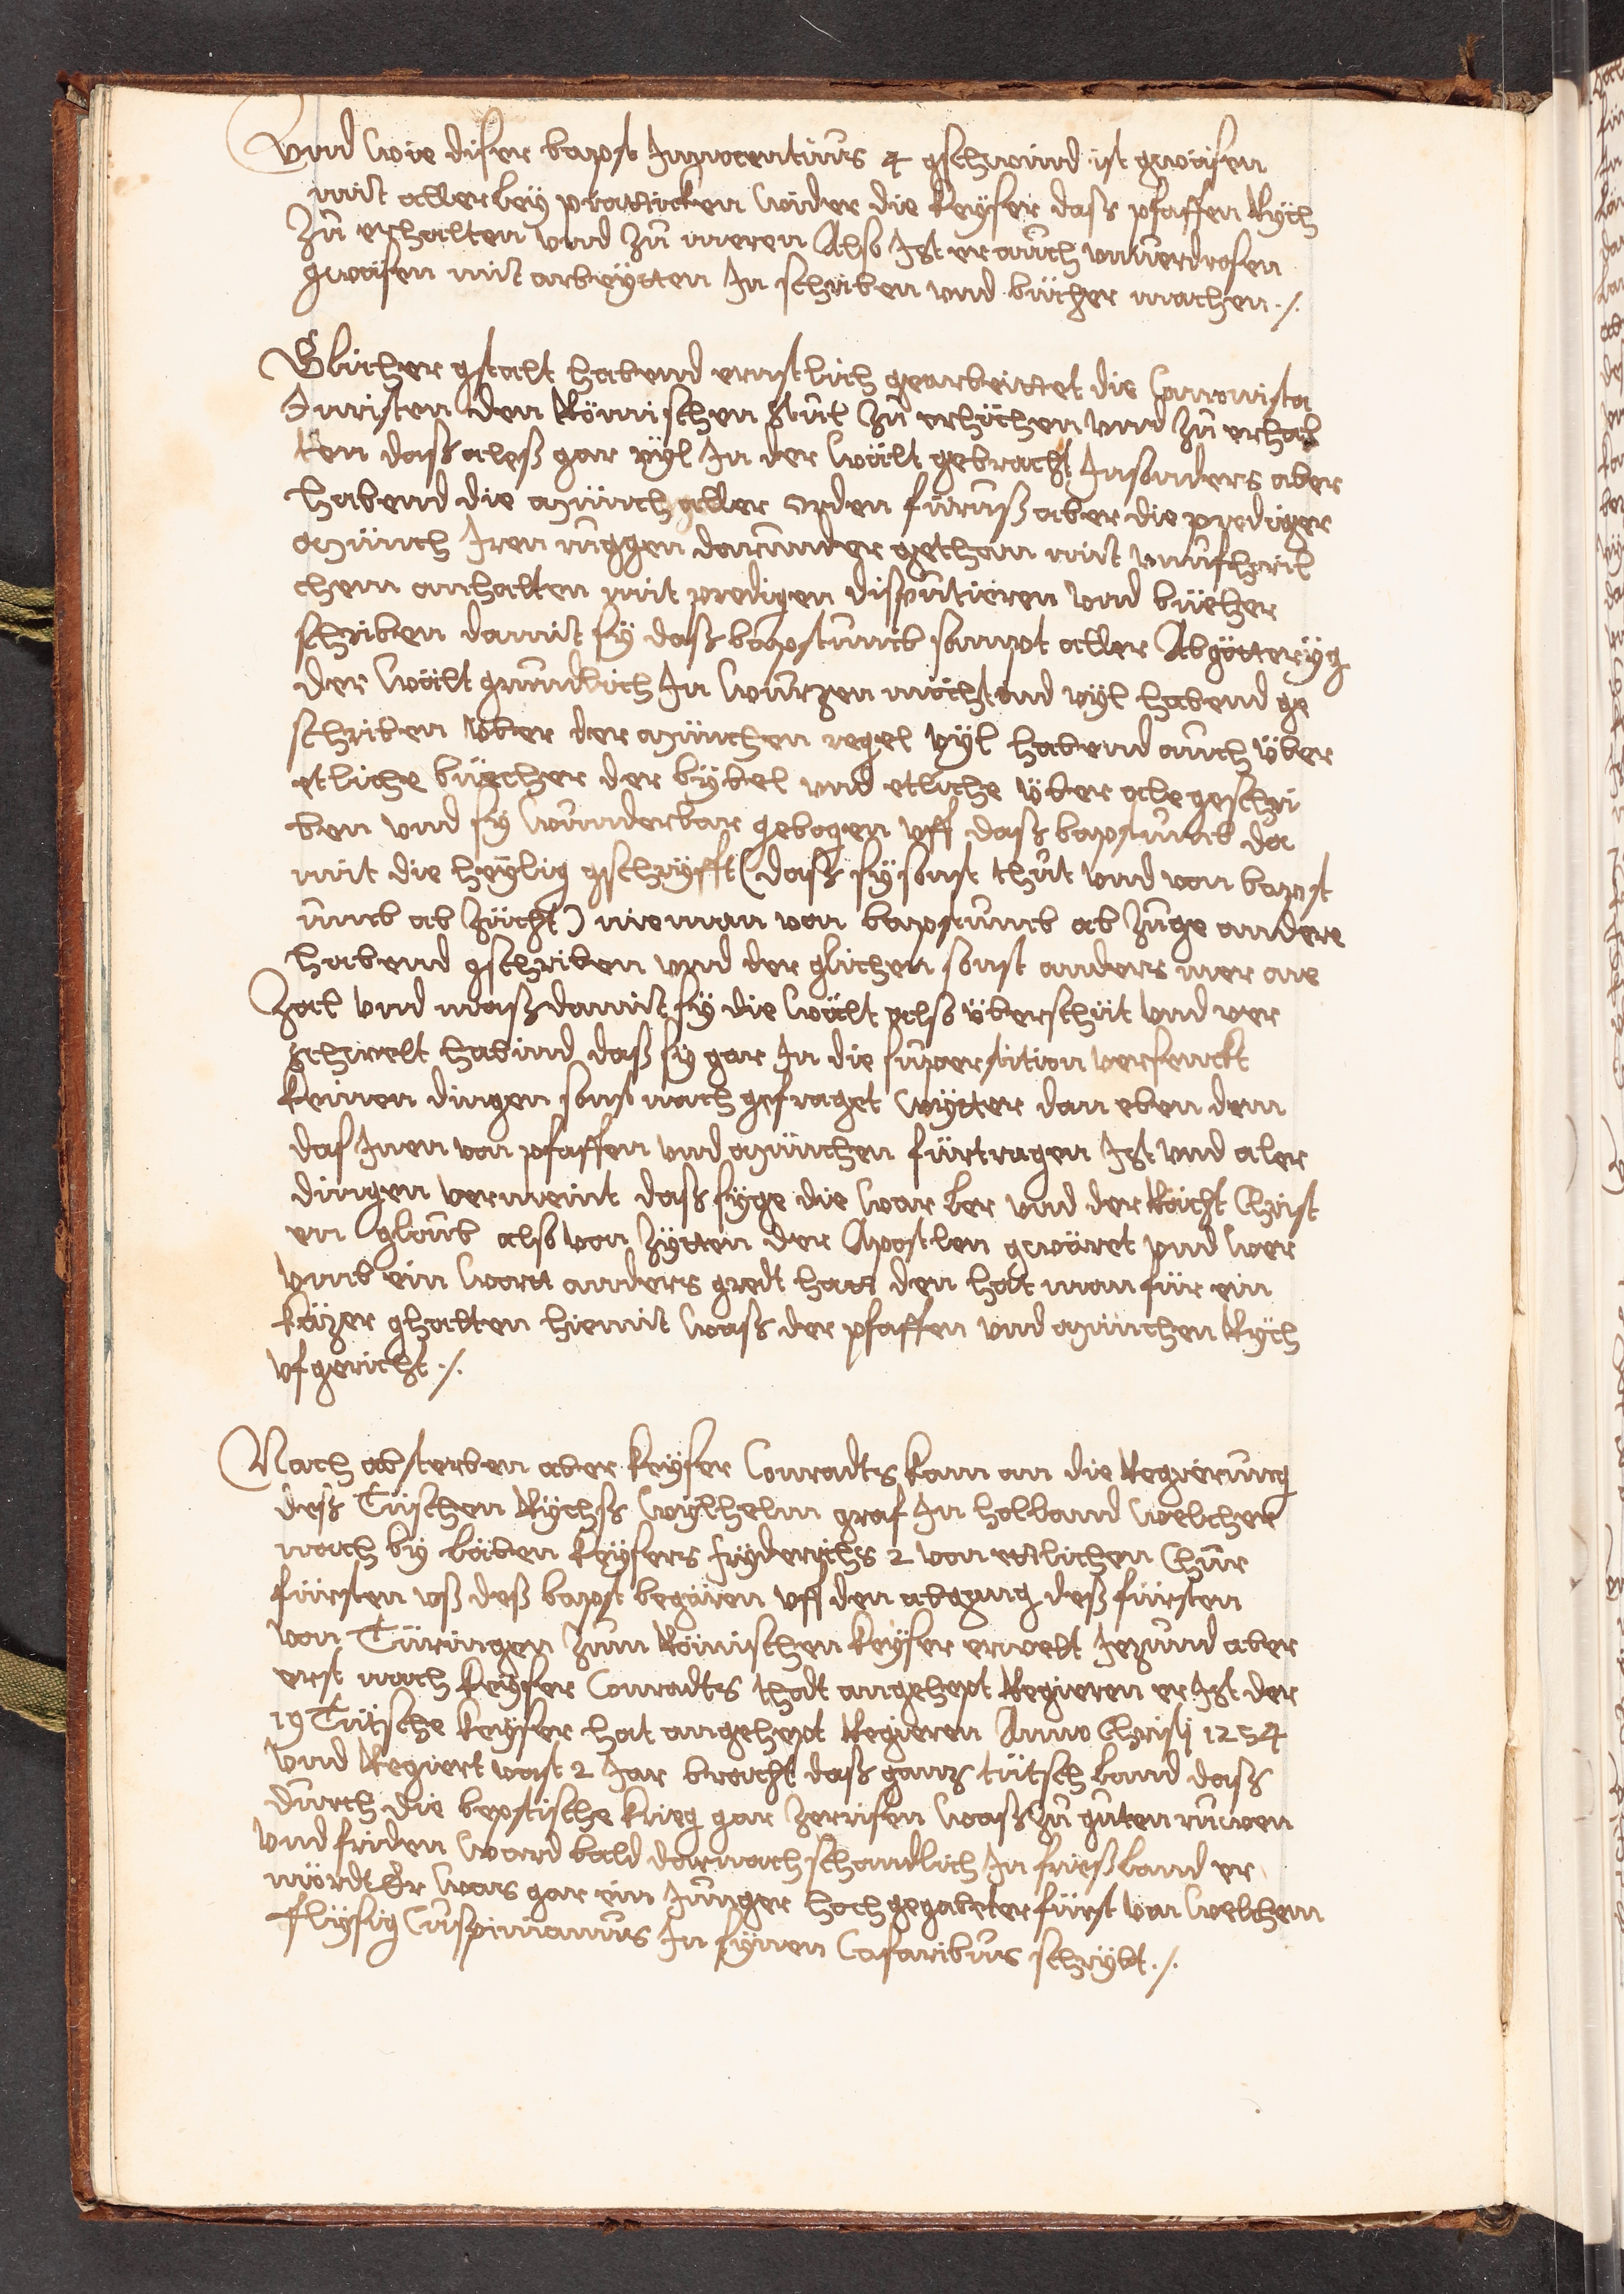 Vnnd wie diser bapst Innocentiuus 4 gschwind ist gwäsen
mitt allerley pratticken wider die keyser daß pfaffen Rych
Zů erhalten vnnd zů meeren Also Ist er auch vnuerdrosen
gwäsen mitt arbeytten In schriben vnnd bücher machen ./.
Glicher gstalt habend ernstlich gearbeittet die Canonista
Juristen den Römischen Stůl zů erhöchen vnnd zů erhal
ten daß aleß gar vyl In der wält gebracht Insonders aber
habend die münch aller orden fürauß aber die prediger
münch Iren ruggen darunnder gethan mitt vnufhörli
chem anhalten mit predigen disputieren vnd büecher
schriben damitt sy daß bapstumb sampt aller Abgötteryg
der wält grundlich In wurzen möchtind vyl habend ge
schriben über der münchen regel vyl habend auch über
etliche büecher der bybel vnd etliche über ale geschri
ben vnd sy wunderbar gebogen vff daß bapstumb da
mit die heylig gschryfft (daß sy sonst thůt vnd von bapst
umb ab zücht) nieman von bapstumb ab zuge andere
habend gschriben vnd der glichen sonst anders mer ane
Zal vnd maß damitt sy die wält also überschüt vnd ver
schwelt habind daß sy gar In die superstition versenckt
keinen dingen sonst nach gefraget wytter dan eben dem
das Inen von pfaffen vnd münchen fürtragen Ist vnd aler
dingen vermeint daß syge die war ler vnd der Rächt Christ
en gloub also von Zytten der Apostlen gwäret vnd wer
vmb ein wortt anders gredt hatt den hatt man für ein
käzer ghalten hiemit waß der pfaffen vnd münchen Rych
vfgericht ./.
Nach absterben aber keyser Conradts kam an die Regierung
deß Tüschen Rychß wylhelm graf In holland welcher
noch by läben keysers fryderichs 2 von ettlichen Chur
fürsten vß deß bapst begären vff den abgang deß fürsten
von Türingen zum Römischen keyser erwelt Jezund aber
erst nach keyser Conradts thodt angehept Regieren er Ist der
19 Tütsche keyser hat angehept Regieren Anno Christj 1254
vnnd Regiert vast 2 Jar bracht daß ganz tütsch land daß
durch die bepstische krieg gar zerrisen waß zů gůten růwen
vnd friden ward bald darnach schandlich In frießland er
mördt Er was gar ein Junger hochgegabeter fürst von welchem
flysig Cuspinianus In synen Casaribus schrybt ./.